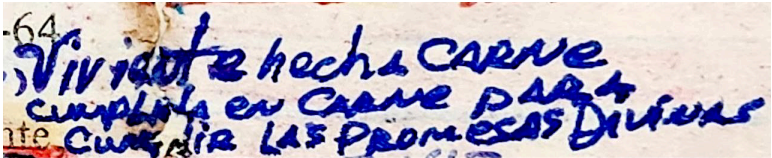 -64
Viviente hecha CARNE
cumplida en CARNE PARA
nte Cumplir LAS PROMESAS DIVINAS